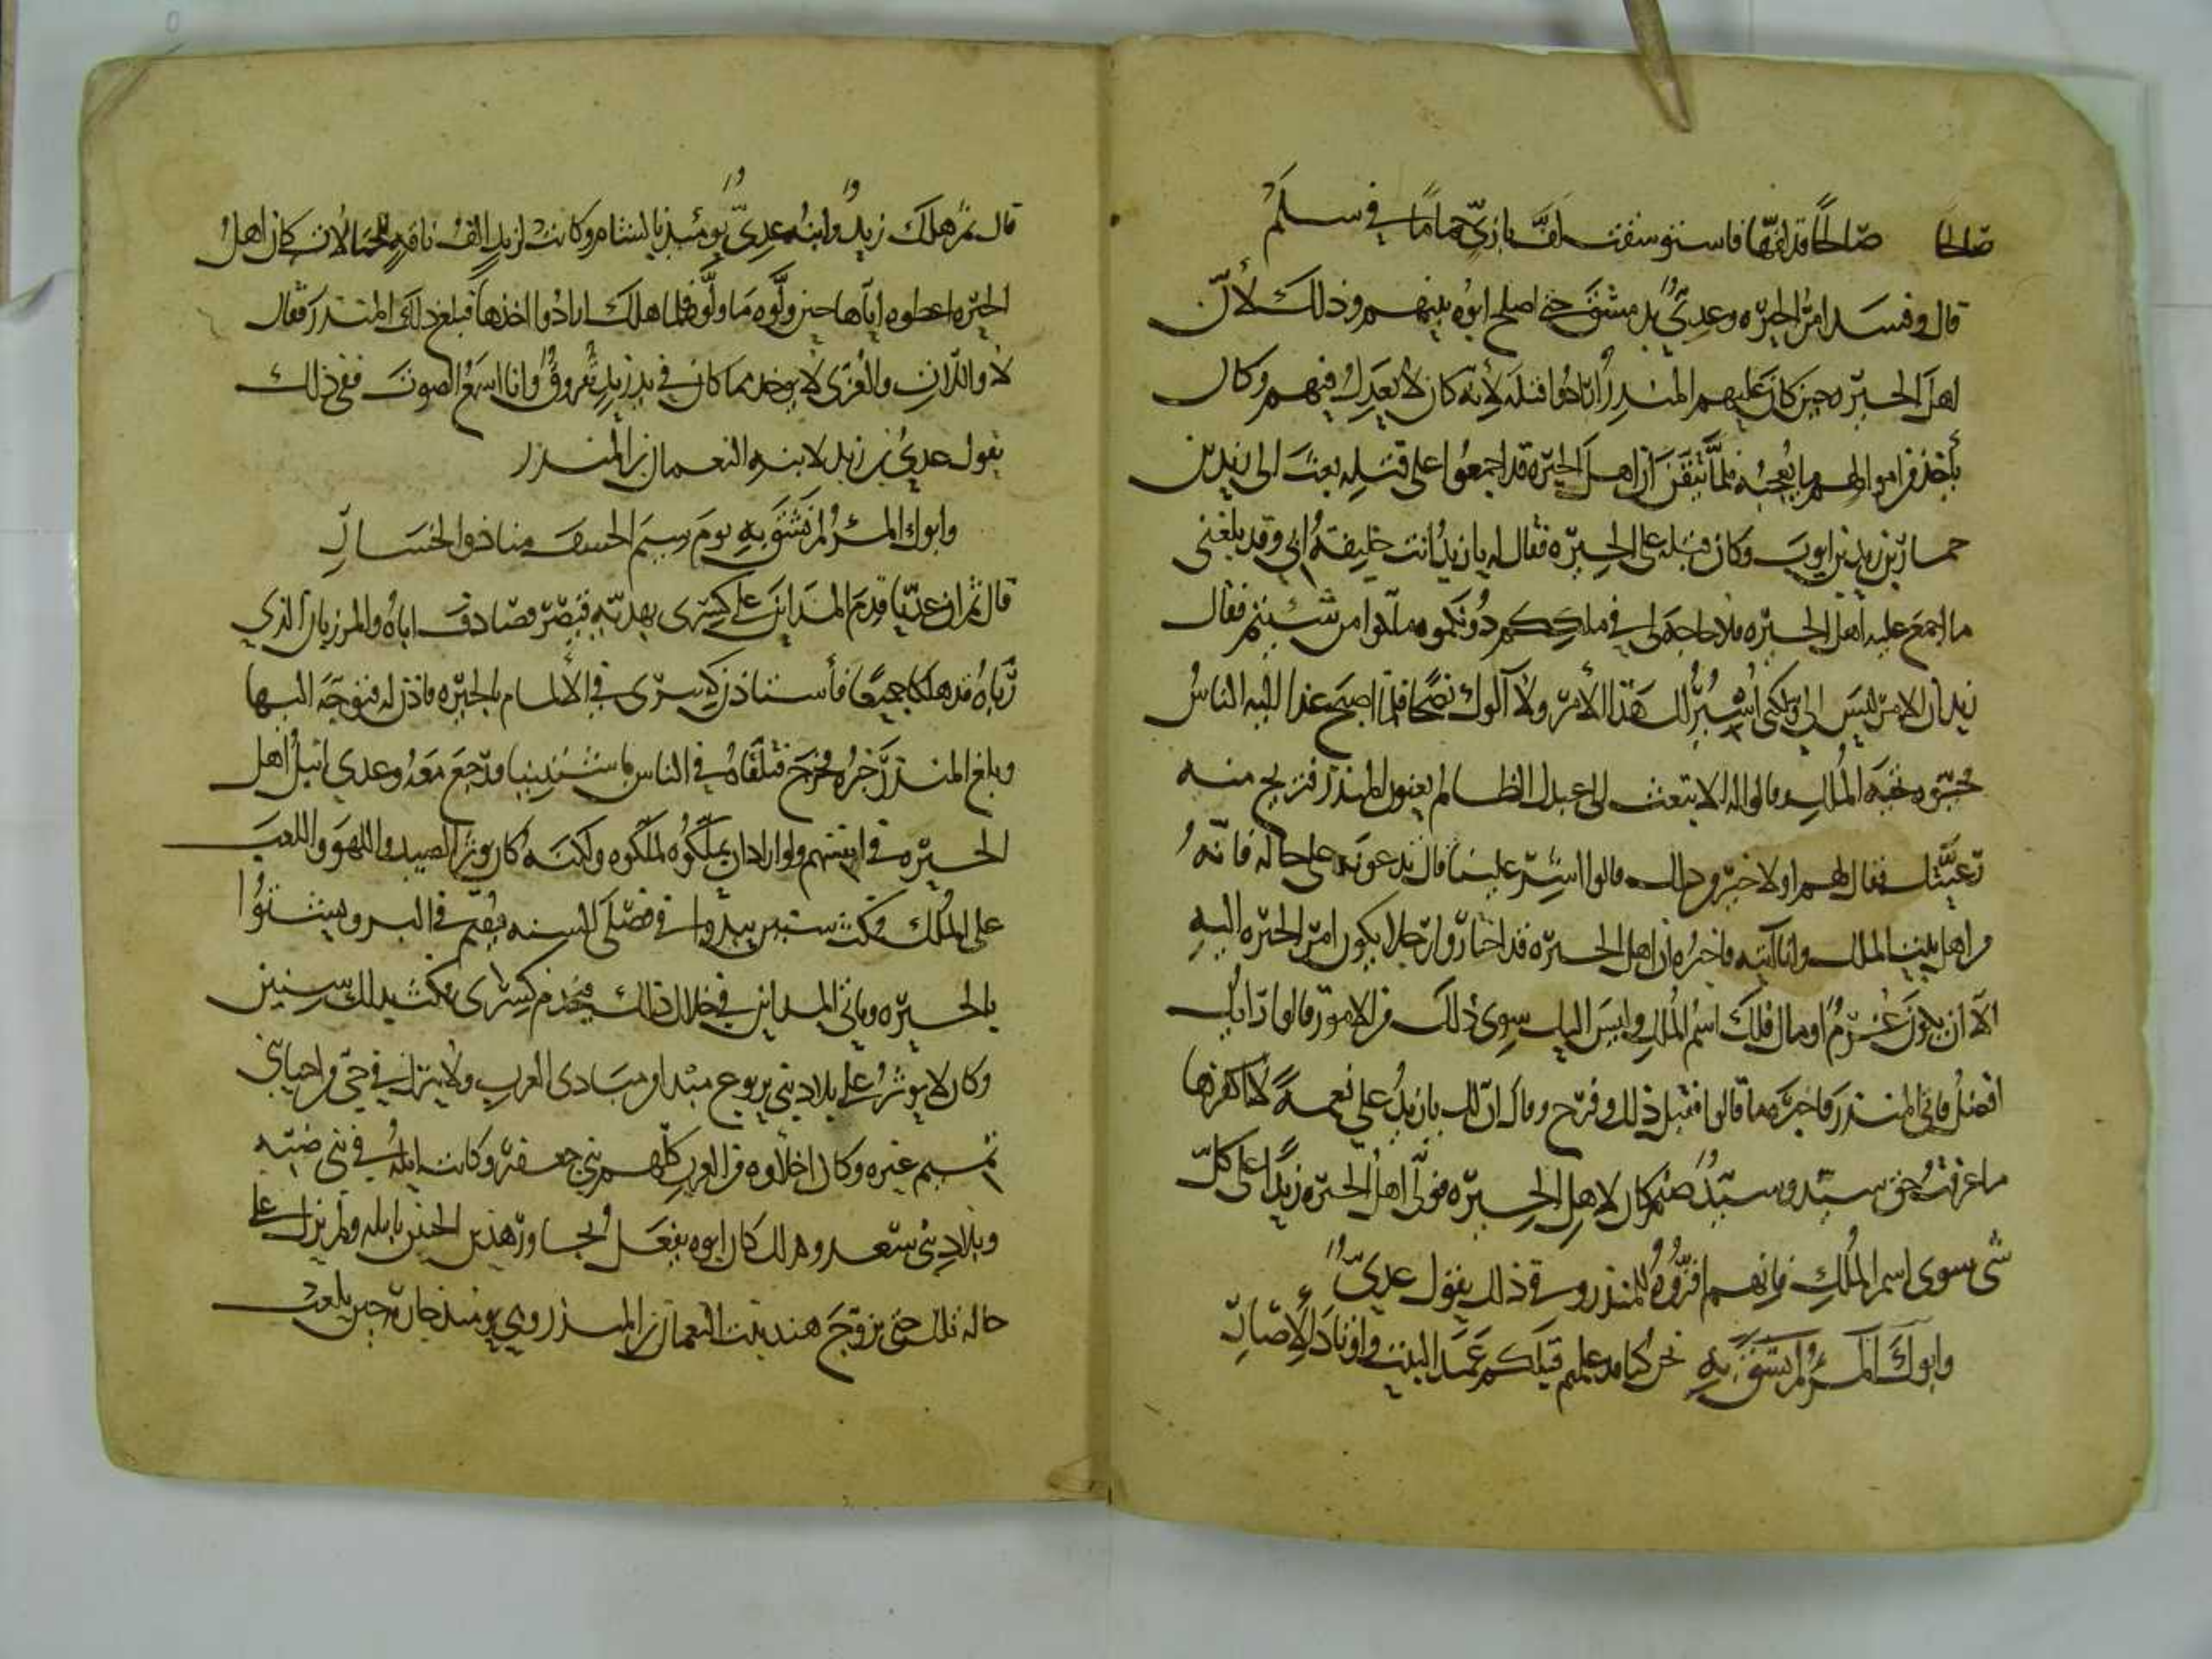 صالحا صالحًا قد لفّها فاستوسقت لفّ بازيّ حمامًا في سلم
قال وفسد امر الحيره وعديٌّ بدمشق حتى اصلح ابوه بينهم وذلك لأنّ
اهل الحيره حين كان عليهم المنذر ارادوا قتله لأنه كان لا يعدل فيهم وكان
يأخذ من اموالهم ما يعجبه فلمّا تيقّن ان اهل الحيره قد اجمعوا على قتله بعث الى زيد بن
حمار بن زيد بن ايوب وكان قبله على الحيره فقال له يا زيد انت خليفة ابي وقد بلغني
ما اجمع عليه اهل الحيره فلا حاجة لي في ملككم دونكموه ملّكوا من شئتم فقال
زيد ان الامر ليس اليّ ولكني اسبر لك هذا الأمر ولا آلوك نصحا فلما اصبح غدا اليه الناس
فحيّوه تحية الملك وقالوا له الا تبعث الى عبدك الظالم يعنون المنذر فتريح منه
رعيّتك فقال لهم اولا خير من ذلك قالوا اشر علينا قال تدعونه على حاله فانه
من اهل بيت الملك وانا آتيه فاخبره ان اهل الحيره قد اختاروا رجلا يكون امر الحيره اليه
الّا ان يكون غزوٌ او قتال فلك اسم الملك وليس اليك سوى ذلك من الامور قالوا رايك
افضل فاتى المنذر فاخبره بما قالوا فقبل ذلك وفرح وقال ان لك يا زيد علي نعمة لا اكفرها
ما عرفت حق سبد وسبد صنم كان لاهل الحيره فولّى اهل الحيره زيدا على كلّ
شي سوى اسم الملك فانهم اقرّوه للمنذر وفي ذلك يقول عديّ
وابوك المرء لم يشنؤ به نحن كنا قد علمتم قبلكم عمد البيت واوتاد الإصار
قال ثم هلك زيد وابنه عدي يومئذ بالشام وكانت لزيد الف ناقه للحمالات كان اهل
الحيره اعطوه اياها حين ولّوه ما ولّوه فلما هلك ارادوا اخذها فبلغ ذلك المنذر فقال
لا واللات والعزى لا يوخذ مما كان في يد زيد ثفروق وانا اسمع الصوت ففي ذلك
يقول عدي بن زيد لابنه النعمان بن المنذر
وابوك المرء لم يشنؤ به يوم سيم الخسف منا ذو الخسار
قال ثم ان عديّا قدم المداين على كسرى بهديّه قيصر فصادف اباه والمرزبان الذي
ربّاه قد هلكا جميعًا فأستاذن كسرى في الالمام بالحيره فاذن له فتوجه اليها
وبلغ المنذر خبره فخرج فتلقاه في الناس ورجع معه وعدي انبل اهل
الحيره في انفسهم ولو اراد ان يملّكوه لملّكوه ولكنه كان يوثر الصيد واللهو واللعب
على الملك فمكث سنين يبدوا في فصلي السنه فيقيم في البر ويشتوا
بالحيره وياتي المداين في خلال ذلك فيخدم كسرى فمكث بذلك سنين
وكان لا يوثر على بلاد بني يربوع مبدا من مبادى العرب ولا ينزل في حيّ من احيا بني
تميم غيرهم وكان اخلاوه من العرب كلهم بني جعفر وكانت ابله في بني ضبّه
وبلاد بني سعد وكذلك كان ابوه يفعل لا يجاوز هذين الحيين بابله ولم يزل على
حاله تلك حتى تزوّج هند بنت النعمان بن المنذر وهي يومئذ جاريه حين بلغت